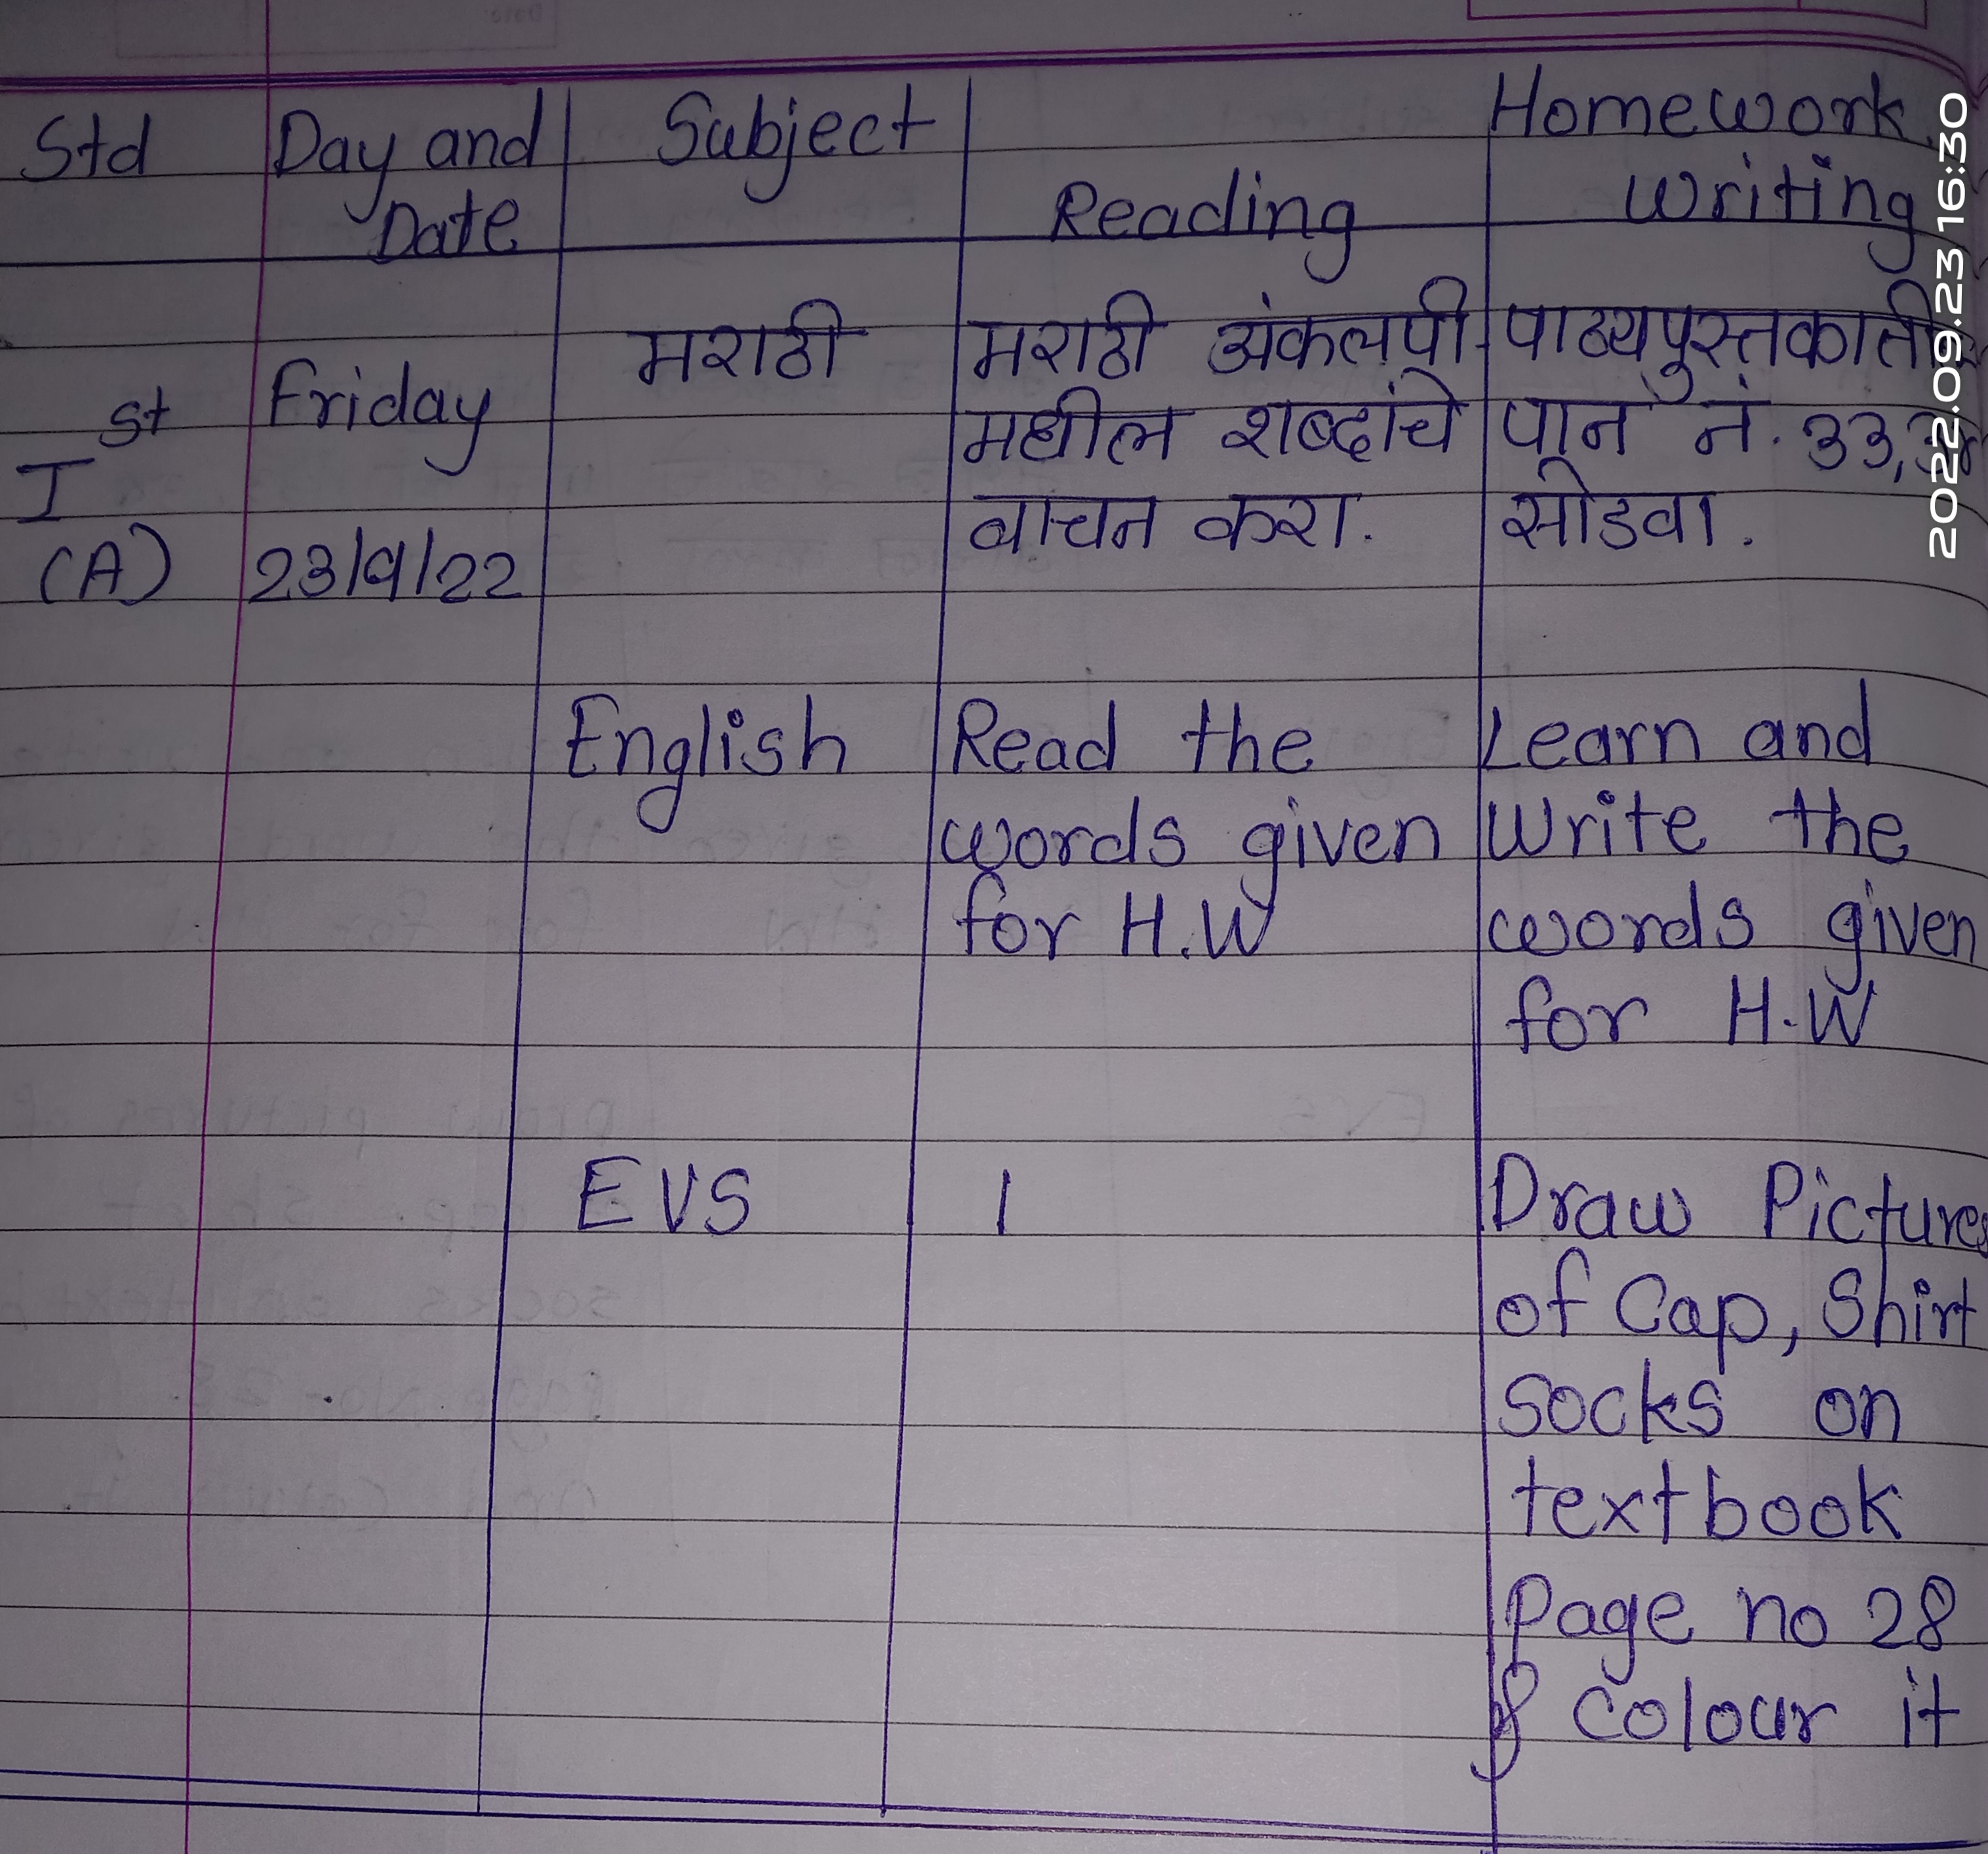 Homework
Std Day and Subject
Date Reading Writing
मराठी मराठी अंकलपी पाठ्यपुस्तकातील
Ist Friday मधील शब्दांचे पान नं. 33,
वाचन करा. सोडवा.
(A) 23/9/22
English Read the Learn and
words given Write the
for H.W words given
for H.W
EVS 1 Draw Pictures
of Cap, Shirt
socks on
textbook
page no 28
& colour it
2022.09.23 16:30